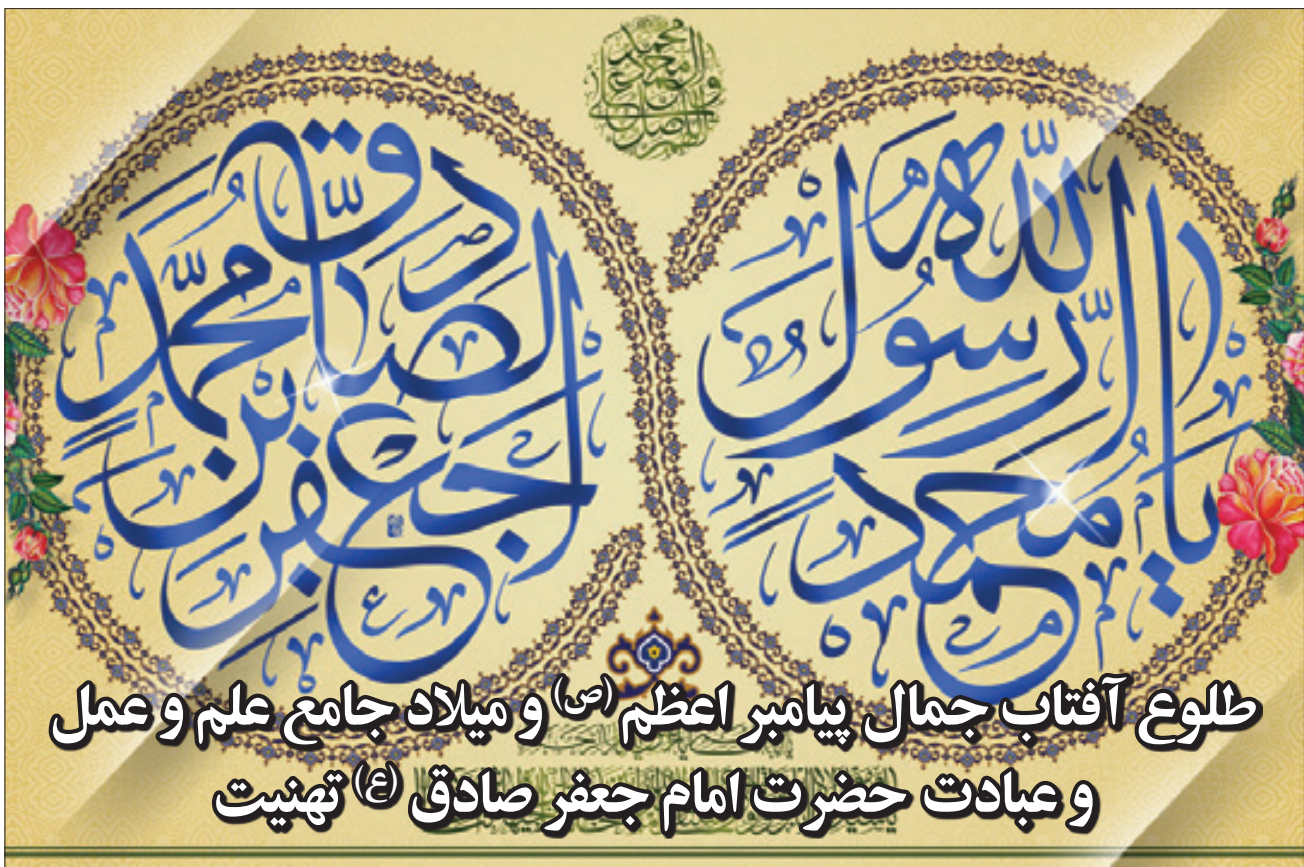 یا محمد
الرسول الله
جعفر بن محمد
الصادق
طلوع آفتاب جمال پیامبر اعظم (ص) و میلاد جامع علم و عمل
و عبادت حضرت امام جعفر صادق (ع) تهنیت